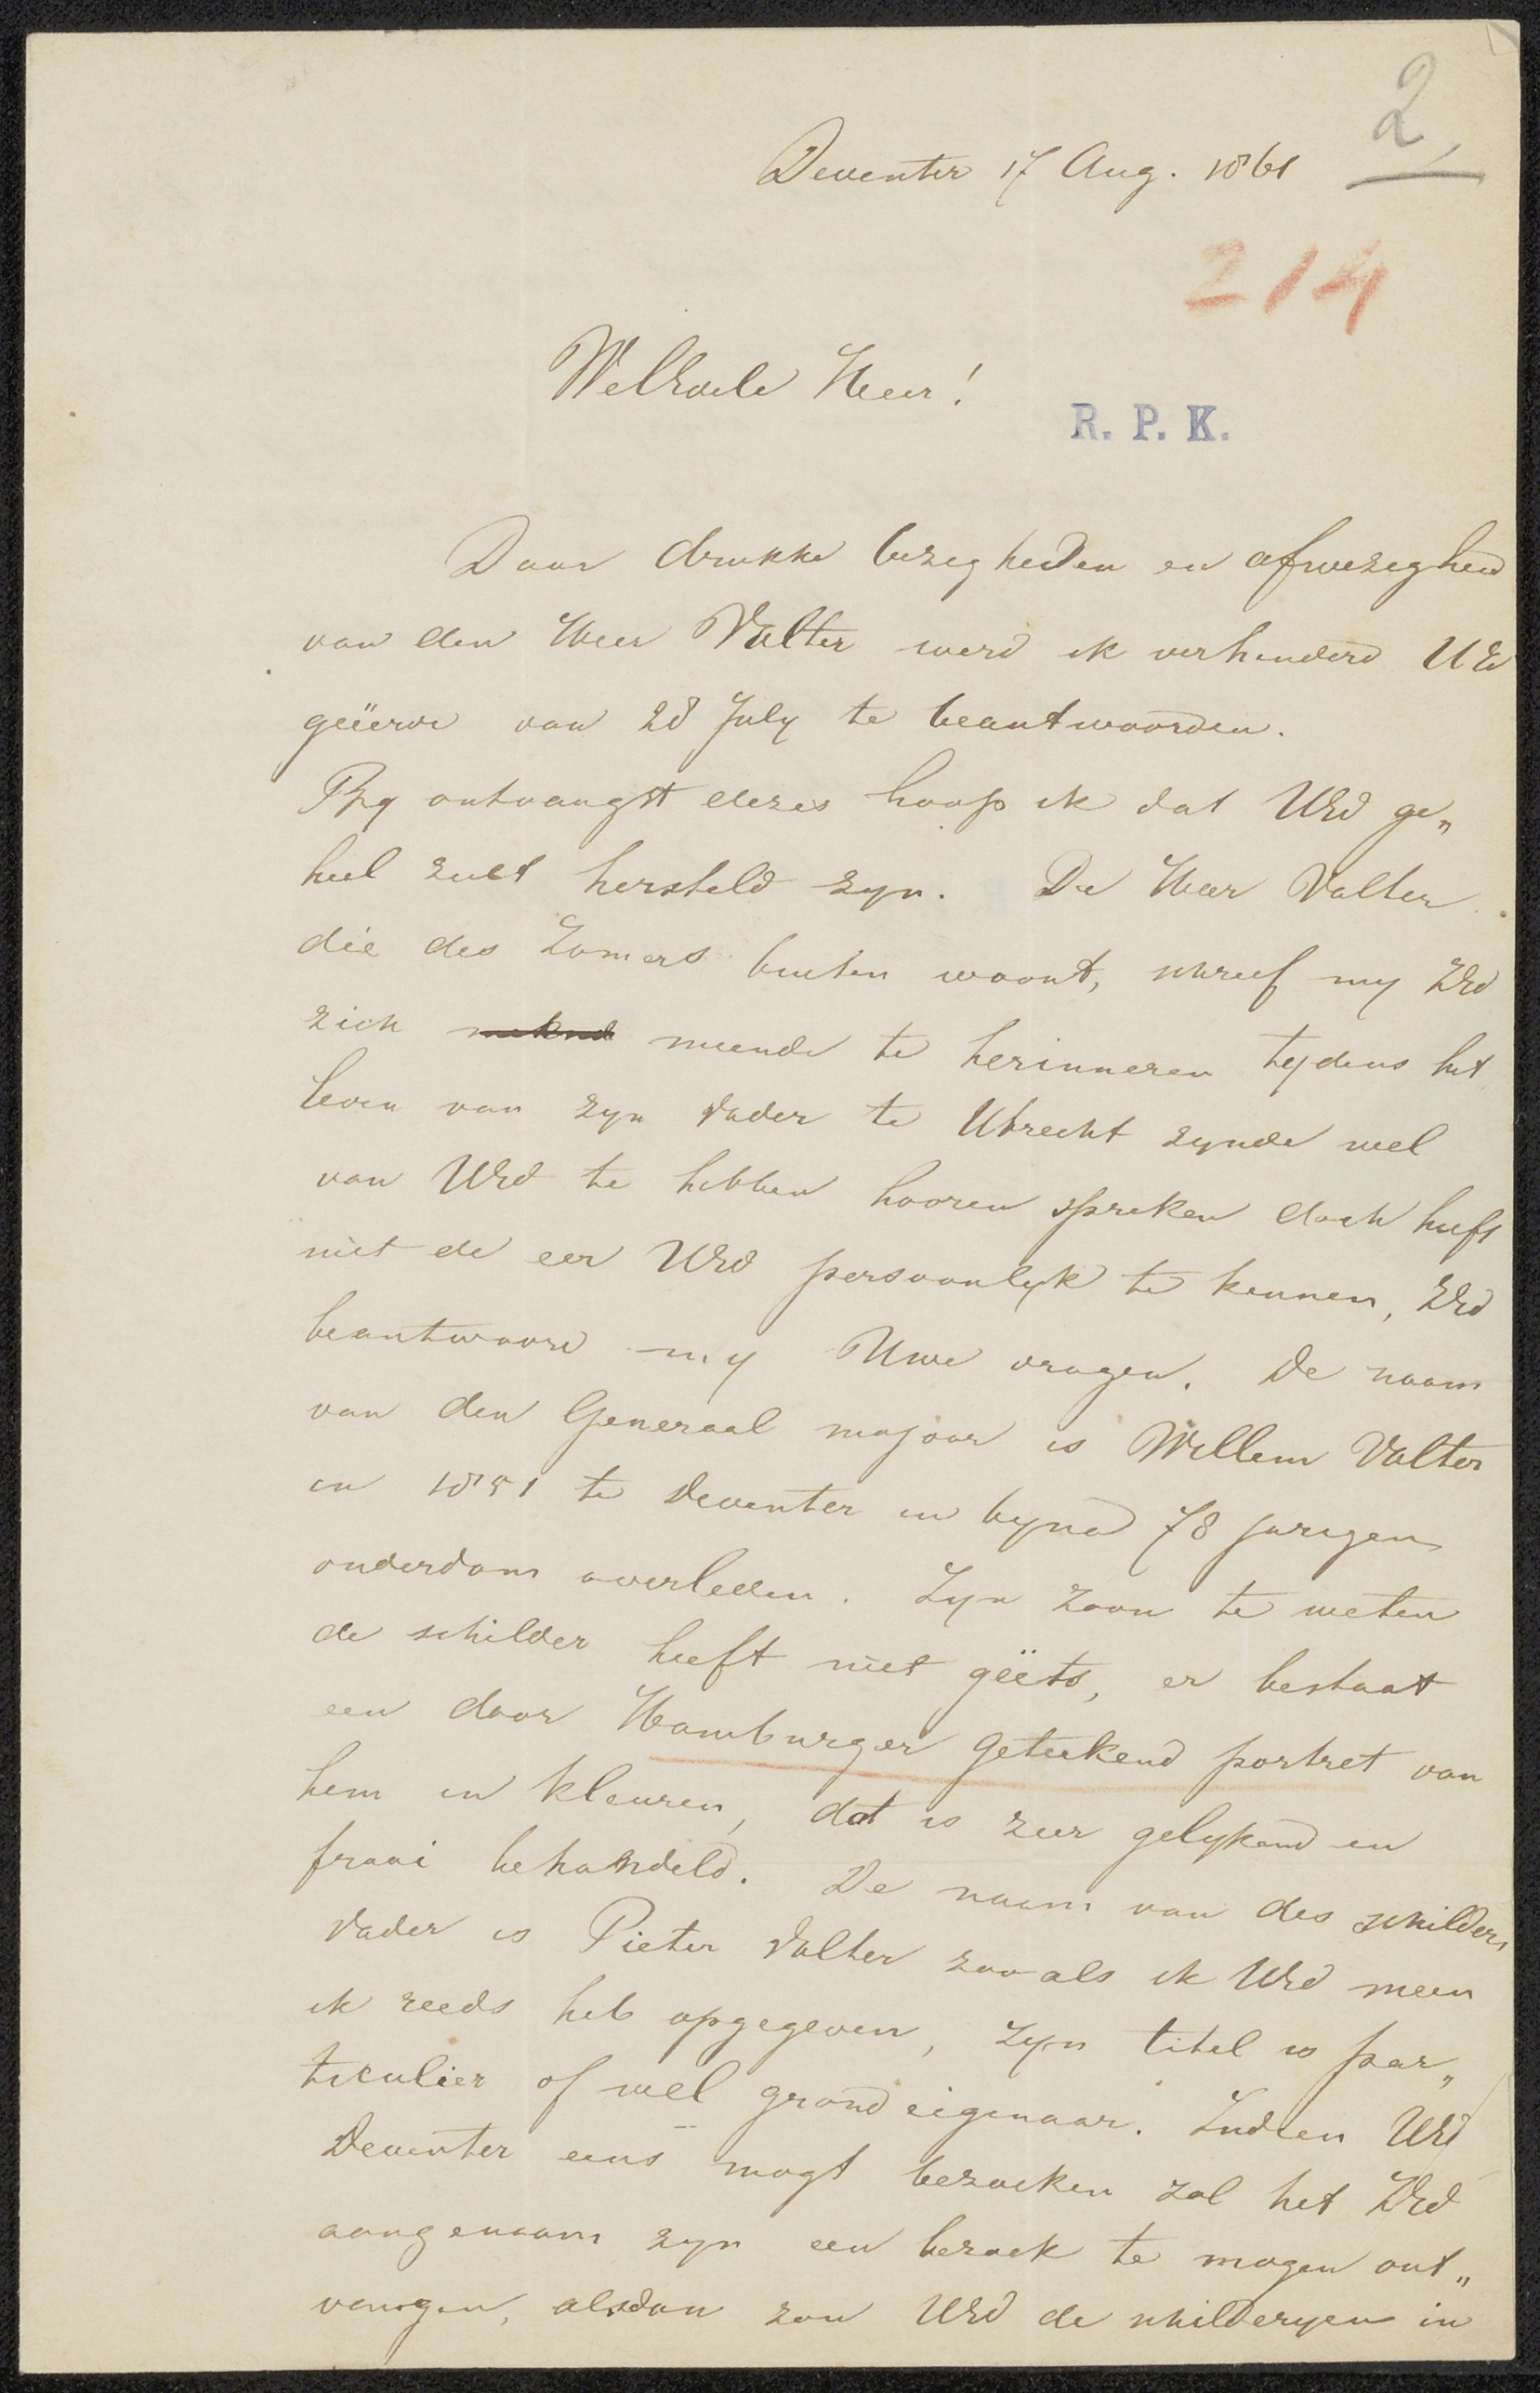 2,
Deventer 17 Aug. 1861
214
WelEdele Heer!
R. P. K.
Door drukke bezigheden en afwezigheid
van den Heer Valter werd ik verhinderd UEd
geëerde van 28 July te beantwoorden.
By ontvangst dezes hoop ik dat UEd ge„
heel zult hersteld zyn. De Heer Valter
die des Zomers buiten woont, schreef my ZEd
zich meende te herinneren tydens het
leven van zyn Vader te Utrecht zynde wel
van UEd te hebben hooren spreken doch heeft
niet de eer UEd persoonlyk te kennen, ZEd
beantwoord my Uwe vragen. De naam
van den Generaal majoor is Willem Valter
in 1851 te Deventer in byna 78 jarigen
ouderdom overleden. Zyn zoon te weten
de schilder heeft niet geëtst, er bestaat
een door Hamburger geteekend portret van
hem in kleuren, dat is zeer gelykend en
fraai behandeld. De naam van des schilders
Vader is Pieter Valter zooals ik UEd meen
ik reeds heb opgegeven, zyn titel is par„
ticulier of wel grond eigenaar. Indien UEd
Deventer eens mogt bezoeken zal het ZEd
aangenaam zyn een bezoek te mogen ont„
vangen, alsdan zou UEd de schilderyen in